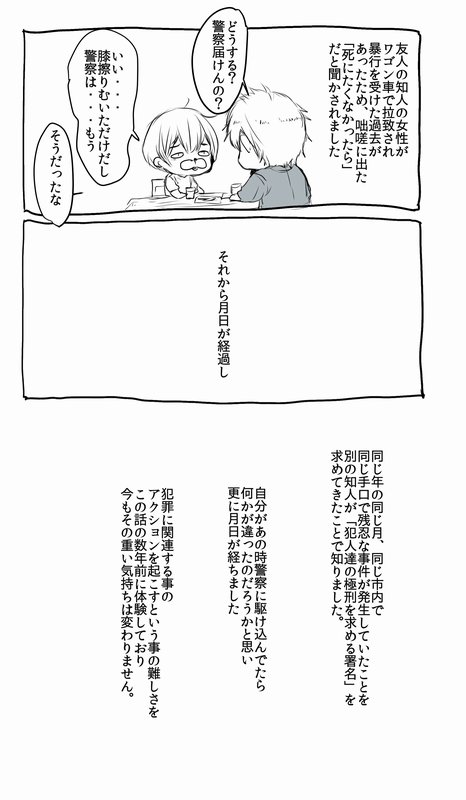 友人の知人の女性が
ワゴン車で拉致され
暴行を受けた過去が
あったため、咄嗟に出た
「死にたくなかったら」
だと聞かされました
どうする？
警察届けんの？
いい・・・
膝擦りむいただけだし
警察は・・・もう
そうだったな
それから月日が経過し
同じ年の同じ月、同じ市内で
同じ手口で残忍な事件が発生していたことを
別の知人が「犯人達の極刑を求める署名」を
求めてきたことで知りました。
自分があの時警察に駆け込んでたら
何かが違ったのだろうかと思い
更に月日が経ちました
犯罪に関連する事の
アクションを起こすという事の難しさを
この話の数年前に体験しており
今もその重い気持ちは変わりません。